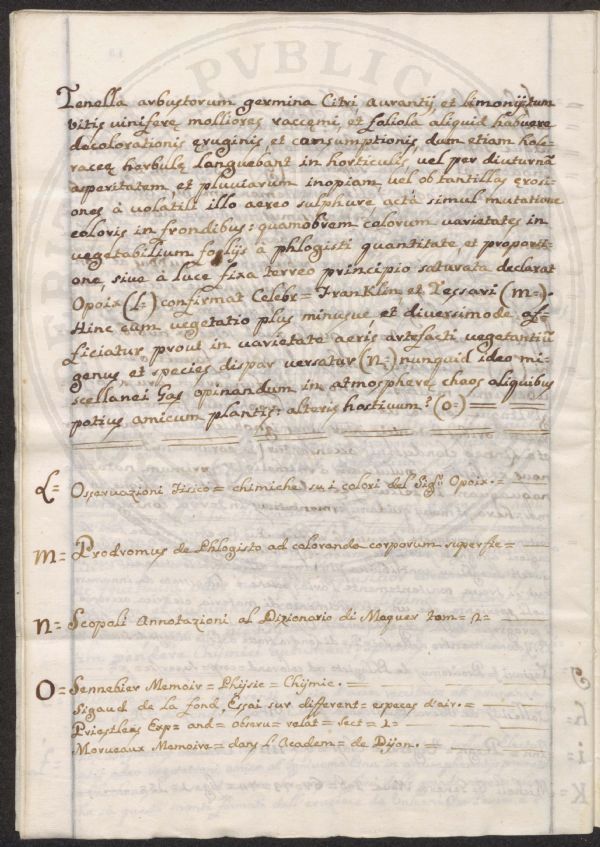 Tenella arbustorum germina Citri, aurantij, et limonij, tum
vitis viniferę molliores raccęmi, et foliola aliquid habuere
decolorationis ęruginis, et consumptionis, dum etiam hole-
raceę herbulę languebant in horticulis, vel per diuturnā
asperitatem, et pluviarum inopiam, vel ob tantillas ęrosi-
ones à volatili illo aereo sulphure, acta simul mutatione
coloris in frondibus: quamobrem colorum varietates in
vegetabilium folijs à phlogisti quantitate, et proporti-
one, sive à luce fixa terreo principio saturata declarat
Opoix (l=) confirmat Celebr= Franklin, et Tessari (m=).
Hinc cum vegetatio plus minusve, et diversimode af=
ficiatur prout in varietate aeris artefacti vegetantiū
genus et species dispar versatur (n=) nunquid ideo mi-
scellanei Gas opinandum in atmospherę chaos aliquibus
potius amicum plantis: alteris hostivum? (o=)
L= Osservazioni Fisico= chimiche su i colori del Sig.r Opoix.=
m= Prodromus de Phlogisto ad coloranda corporum superfic=
n= Scopoli Annotazioni al Dizionario di Maquer tom= 2=
O= Sennebier Memoir= Phÿsic= Chÿmic.=
Sigaud de la fond, Essai sur different= especes d'air.=
Priestleÿs Exp= and= observ= relat= sect= 1=
Morveaux Memoire= dans l'Academ= de Dijon.=
h
i
K